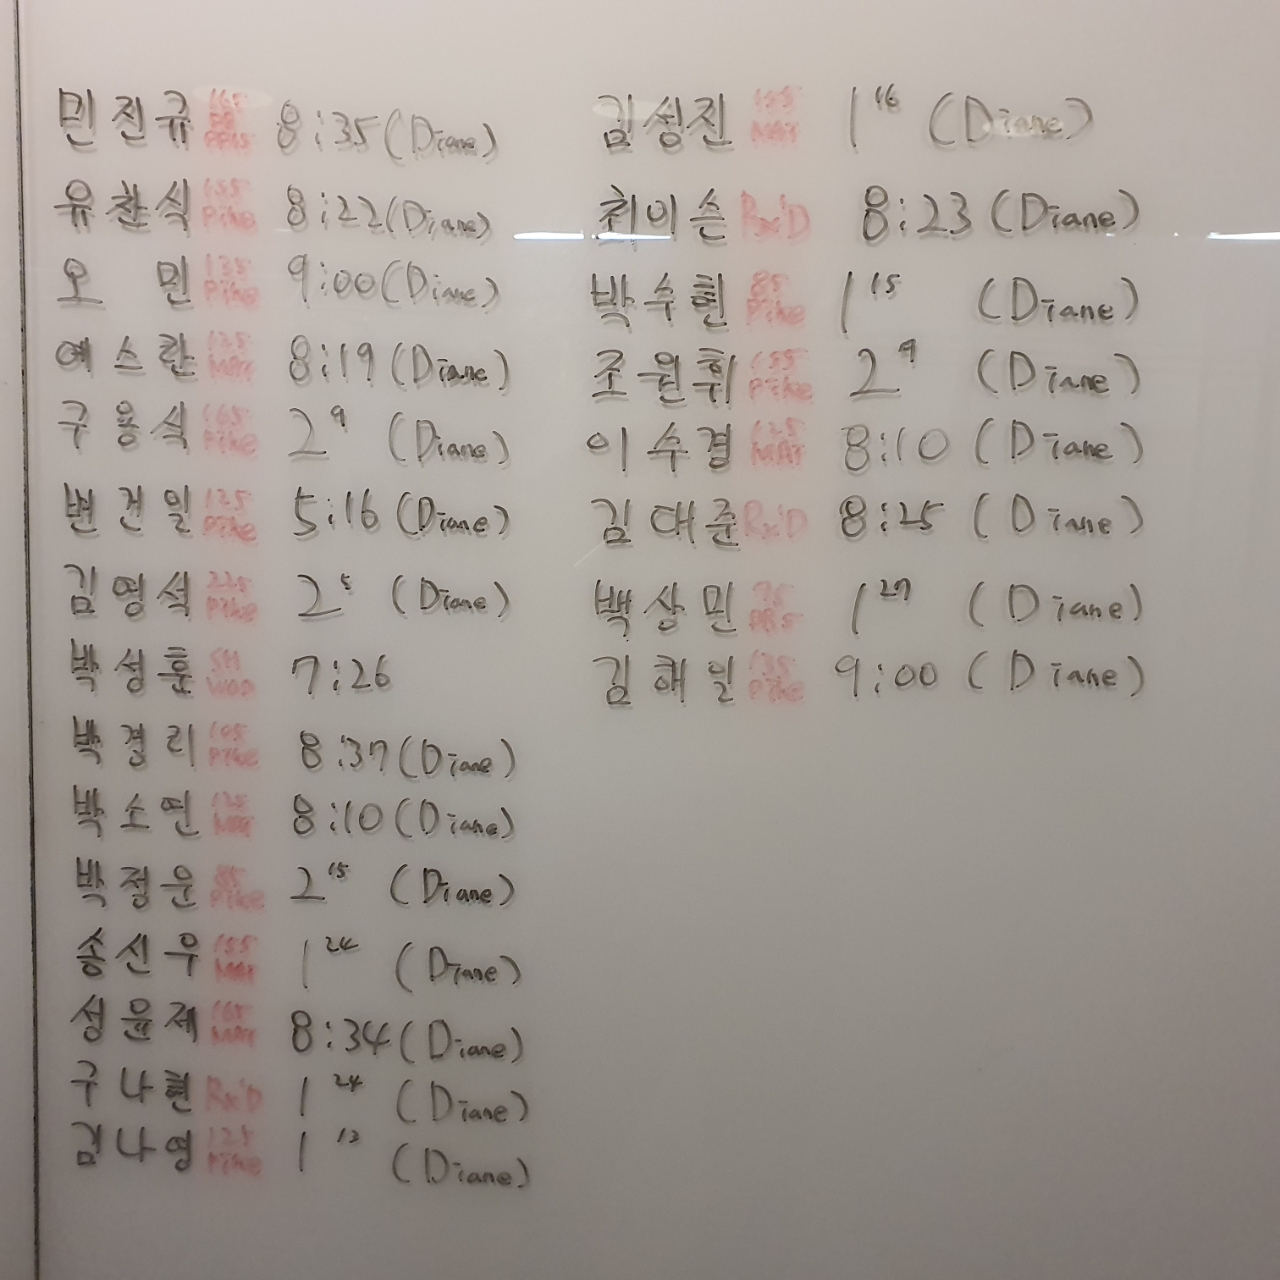 민진규 165 8:35 (Diane)
유찬식 155 Pike 8:22 (Diane)
오 민 135 Pike 9:00 (Diane)
예스란 125 MAT 8:19 (Diane)
구용식 165 Pike 2 9 (Diane)
변건일 125 Pike 5:16 (Diane)
김영석 225 Pike 2 5 (Diane)
박성훈 SH WOD 7:26
박경리 105 Pike 8:37 (Diane)
박소연 MAT 8:10 (Diane)
박정운 85 Pike 2 15 (Diane)
송신우 155 MAT 1 24 (Diane)
성윤제 165 MAT 8:34 (Diane)
구나현 Rx'D 1 24 (Diane)
김나영 125 Pike 1 13 (Diane)
김성진 155 MAT 1 16 (Diane)
최이슨 Rx'D 8:23 (Diane)
박수현 85 Pike 1 15 (Diane)
조원휘 155 Pike 2 9 (Diane)
이수경 125 MAT 8:10 (Diane)
김대준 Rx'D 8:25 (Diane)
백상민 1 27 (Diane)
김해일 135 Pike 9:00 (Diane)